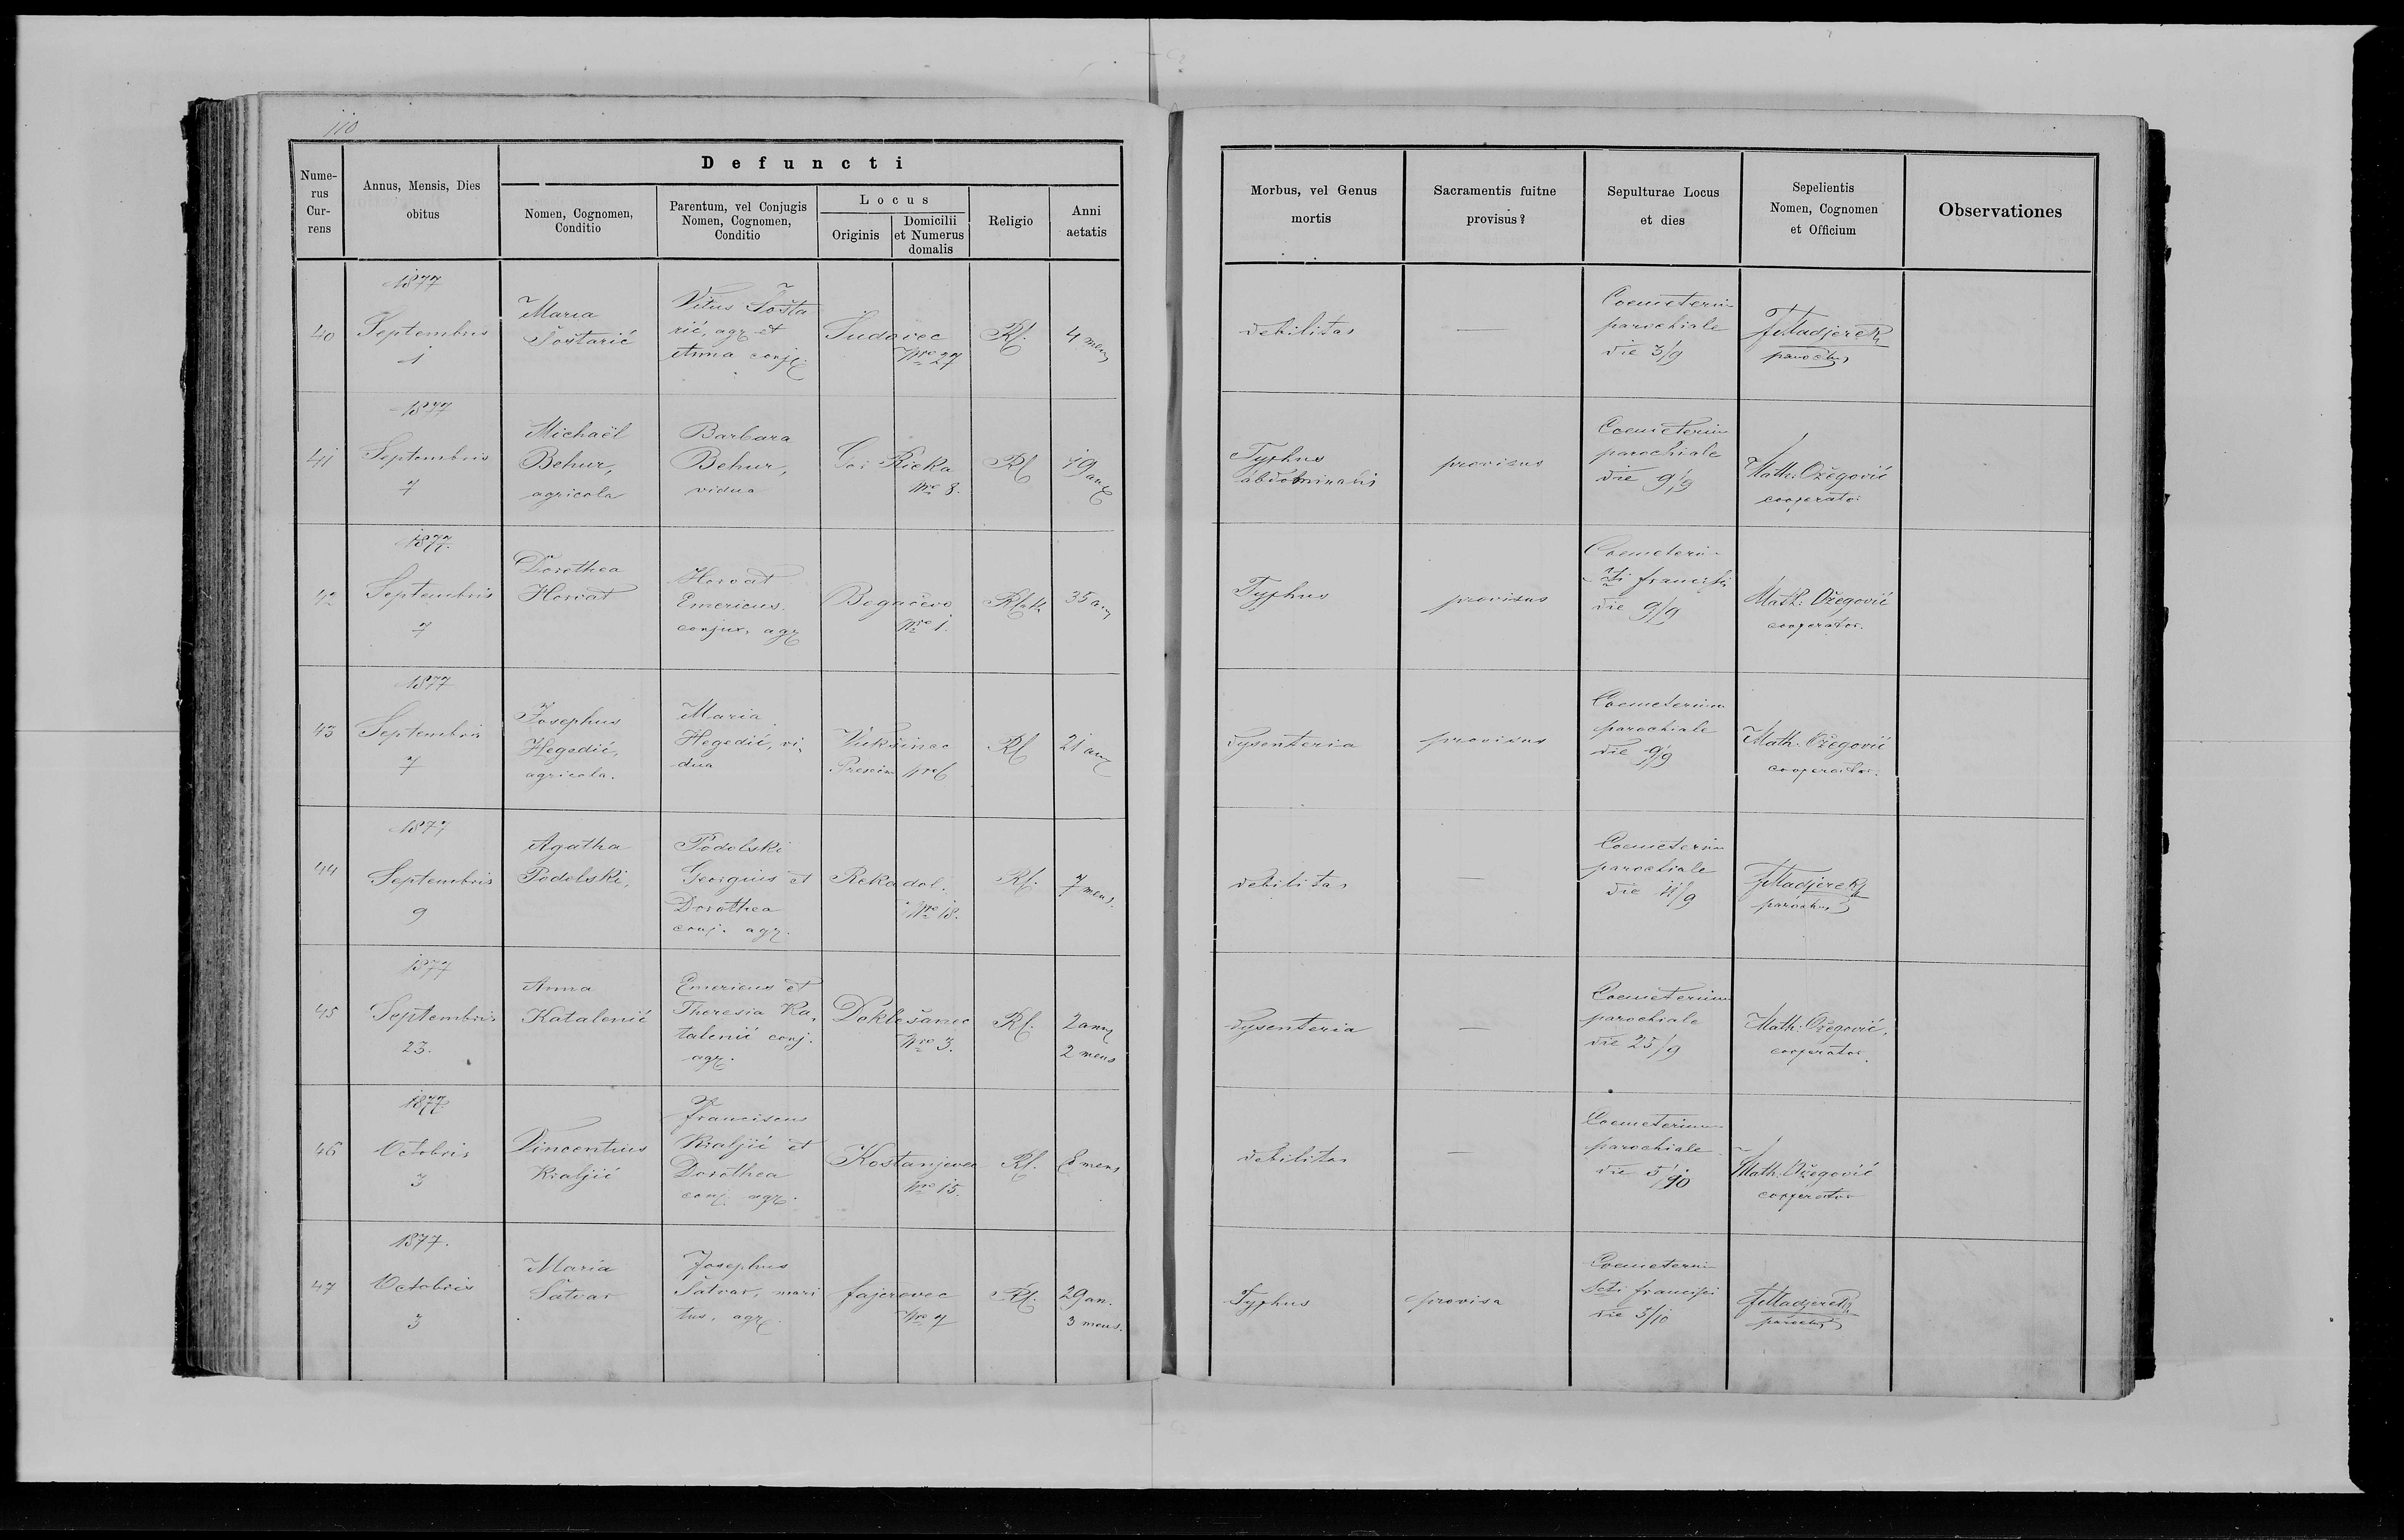 110
Defuncti
Nume-
rus
Cur-
rens
Annus, Mensis, Dies
obitus
Nomen, Cognomen,
Conditio
Parentum, vel Conjugis
Nomen, Cognomen,
Conditio
Locus
Originis
Domicilii
et Numerus
domalis
Religio
Anni
aetatis
Morbus, vel Genus
mortis
Sacramentis fuitne
provisus?
Sepulturae Locus
et dies
Sepelientis
Nomen, Cognomen
et Officium
Observationes
40
1877
Septembris
1
Maria
Šoštarić
Vitus Šošta
rić, agr. et
Anna conj.
Judovec
Nro 27
Rf.
4 mens
debilitas
—
Coemeterium
parochiale
die 3/9
Madjerek
parochus
41
1877
Septembris
7
Michaël
Behur,
agricola
Barbara
Behur,
vidua
Rieka
Nro 8.
Rf
19 an
Typhus
abdominalis
provisus
Coemeterium
parochiale
die 9/9
Math: Ožegović
cooperator
42
1877.
Septembris
7
Dorothea
Horvat
Horvat
Emericus.
conjux, agr
Bogačevo
Nro 1.
35 an
Typhus
provisus
Coemeterium
Sti francisci
die 9/9
Math: Ožegović
cooperator.
43
1877
Septembris
7
Josephus
Hegedić,
agricola.
Maria
Hegedić, vi-
dua
Vukšinec
Nro 6
Rf
21 an
dysenteria
provisus
Coemeterium
parochiale
die 9/9
Math: Ožegović
cooperator.
44
1877
Septembris
9
Agatha
Podolski,
Podolski
Georgius et
Dorothea
conj. agr.
Reka dol.
Nro 18.
Rf.
7 mens.
debilitas
—
Coemeterium
parochiale
die 11/9
Madjerek
parochus
45
1877
Septembris
23.
Anna
Katalenić
Emericus et
Theresia Ka-
talenić conj.
agr.
Doklešanec
Nro 3.
Rf.
2 ann
2 mens
dysenteria
—
Coemeterium
parochiale
die 25/9
Math: Ožegović,
cooperator.
46
1877
Octobris
3
Vincentius
Kraljić
Franciscus
Kraljić et
Dorothea
conj. agr.
Kostanjevec
Nro 15.
Rf.
8 mens
debilitas
—
Coemeterium
parochiale
die 5/10
Math. Ožegović
cooperator
47
1877.
Octobris
3
Maria
Šatvar
Josephus
Šatvar, mari
tus, agr.
fajerovec
Nro 7
Rf.
29 an.
3 mens.
Typhus
provisa
Coemeterium
Scti francisci
die 5/10
Madjerek
parochus